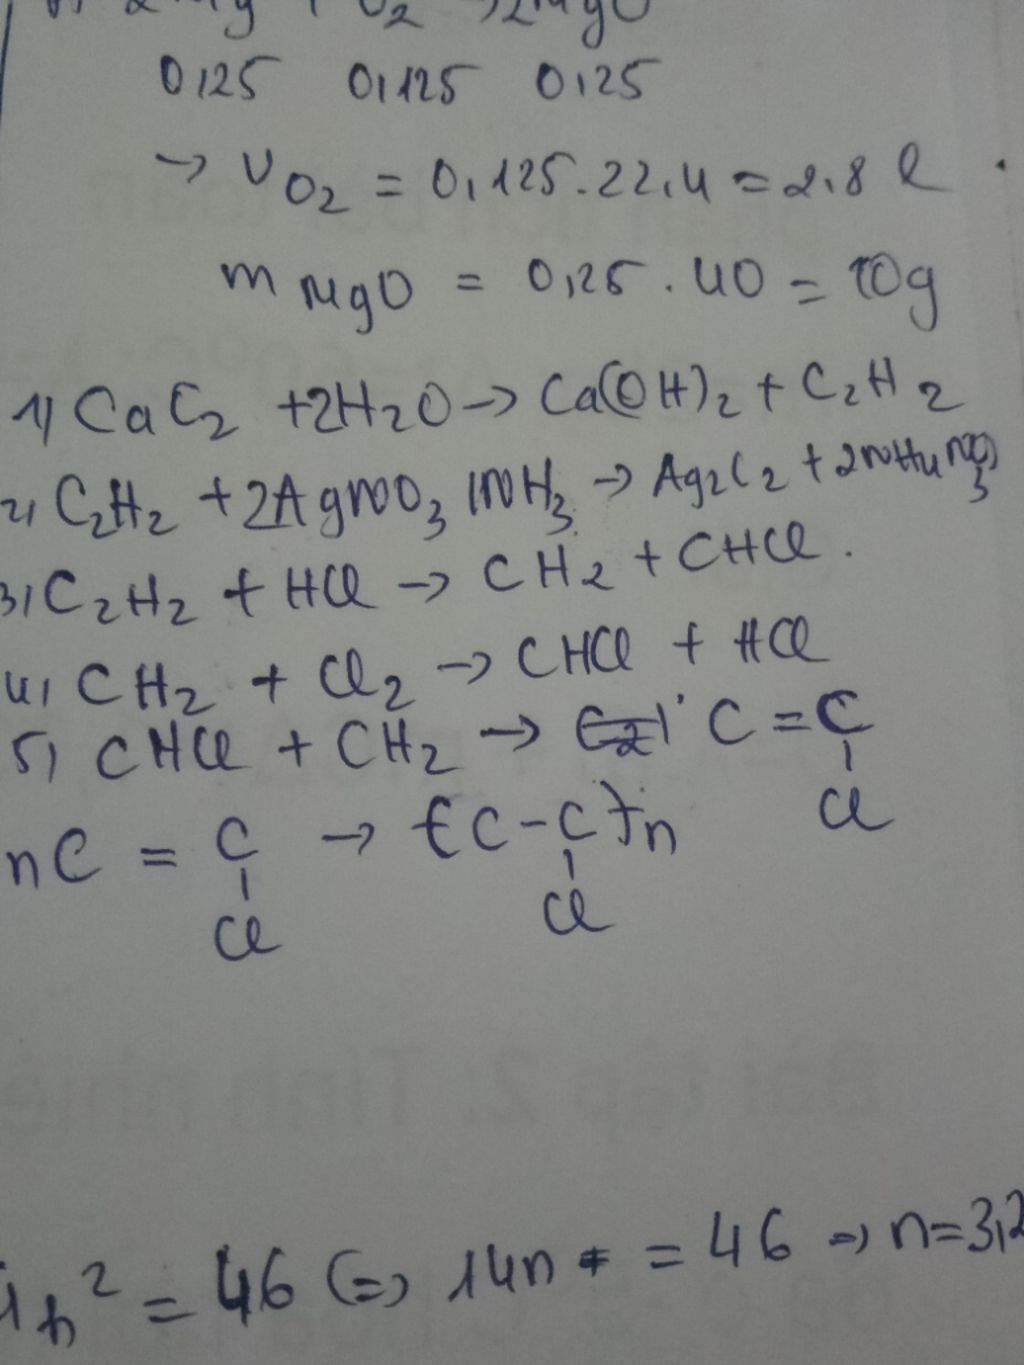 2Mg + O2 → 2MgO
0,25 0,125 0,25
→ VO2 = 0,125.22,4 = 2,8 l
mMgO = 0,25 . 40 = 10g
1) CaC2 + 2H2O → Ca(OH)2 + C2H2
2) C2H2 + 2AgNO3 + NH3 → Ag2C2 + 2NH4NO3
3) C2H2 + HCl → CH2 + CHCl.
4) CH2 + Cl2 → CHCl + HCl
5) CHCl + CH2 → C = C
Cl
nC = C → (C - C)n
Cl Cl
2 = 46 (=) 14n = 46 => n = 3,2